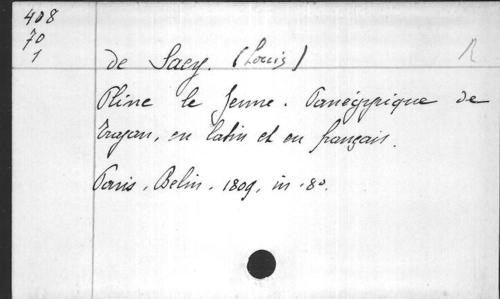 408
70
1
de Sacy. (Louis) R
Pline le Jeune. Panégyrique de
Trajan, en latin et en français.
Paris. Belin. 1809, in-8o.